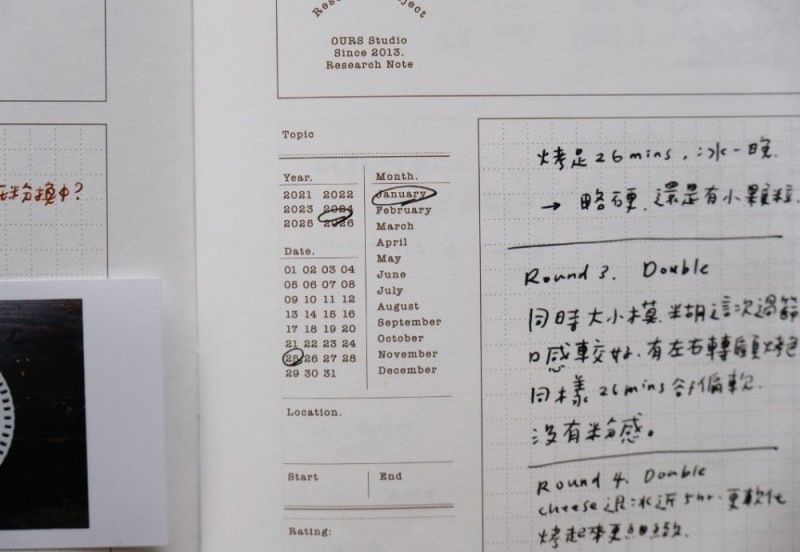 Research Project
OURS Studio
Since 2013.
Research Note
粉換中?
Topic
Year.
2021 2022
2023 2024
2025 2026
Month.
January
February
March
April
May
June
July
August
September
October
November
December
Date.
01 02 03 04
05 06 07 08
09 10 11 12
13 14 15 16
17 18 19 20
21 22 23 24
25 26 27 28
29 30 31
Location.
Start
End
Rating:
烤足26mins,冰一晚.
→ 略硬.還是有小顆粒.
Round 3. Double
同時大小模.糊這次過篩
口感較好.有左右轉頭烤色
同樣26mins 偏軟.
沒有粉感。
Round 4. Double
cheese退冰近5hr.更軟化
烤起來更細緻.